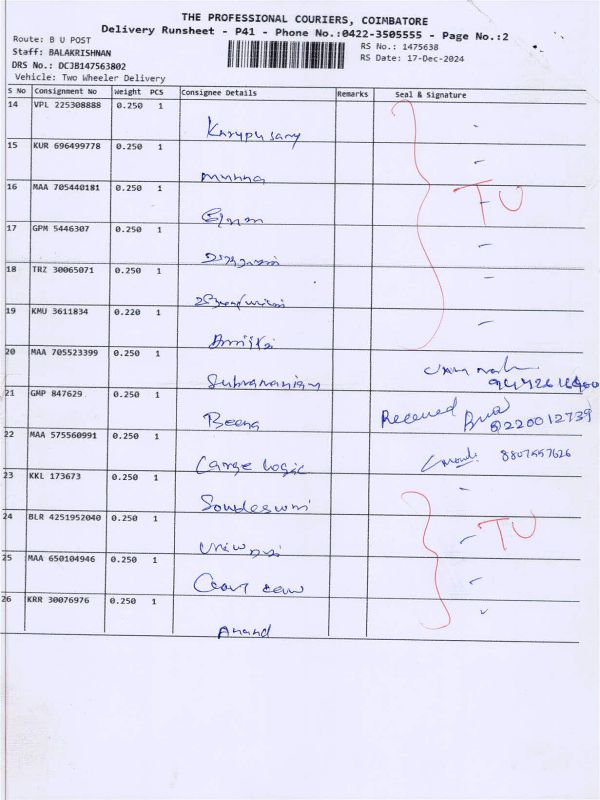 THE PROFESSIONAL COURIERS, COIMBATORE
Delivery Runsheet - P41 - Phone No.:0422-3505555 - Page No.:2
Route: B U POST
RS No.: 1475638
Staff: BALAKRISHNAN
RS Date: 17-Dec-2024
DRS No.: DCJB147563802
Vehicle: Two Wheeler Delivery
S No Consignment No Weight PCS Consignee Details Remarks Seal & Signature
14 VPL 225308888 0.250 1
Karuppusamy
15 KUR 696499778 0.250 1
Munna
16 MAA 705440181 0.250 1
TU
17 GPM 5446307 0.250 1
18 TRZ 30065071 0.250 1
19 KMU 3611834 0.220 1
20 MAA 705523399 0.250 1
Subramaniam
21 GMP 847629 0.250 1
Beena Received 8220012739
22 MAA 575560991 0.250 1
Large logic 8807557626
23 KKL 173673 0.250 1
24 BLR 4251952040 0.250 1
TU
25 MAA 650104946 0.250 1
26 KRR 30076976 0.250 1
Anand